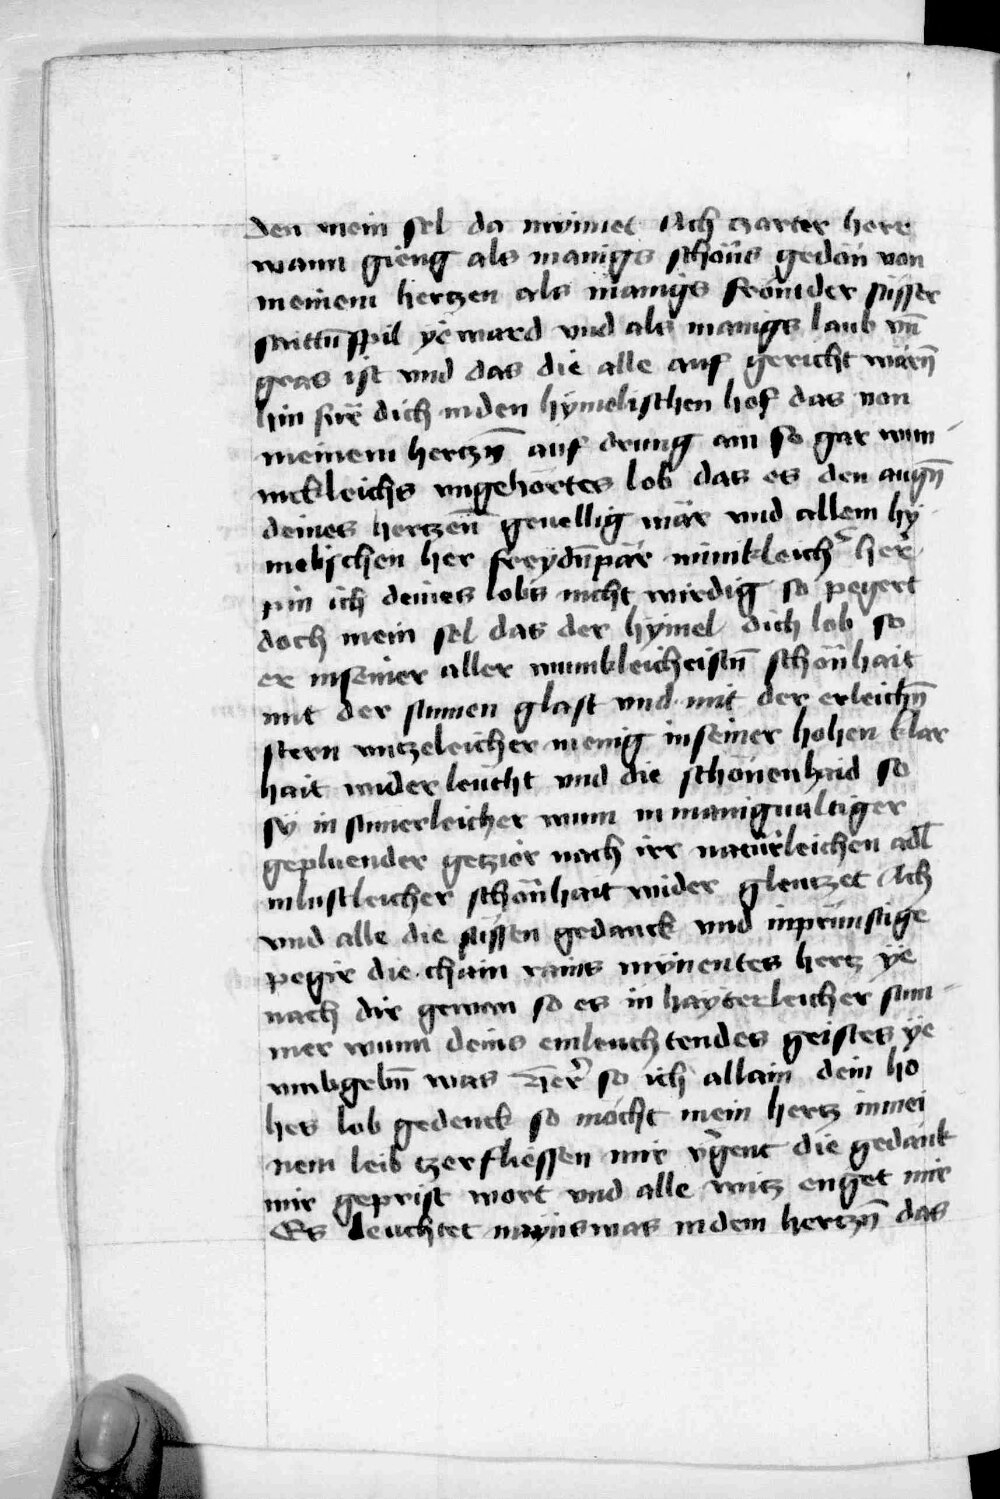 den mein sel da mÿnnet Ach tzarter herr
wann gieng als manigs schöns gedön von
meinem hertzen als manigs frömder süsser
saittn̄spil ÿe ward vnd als manigs laub vn̄
gras ist vnd das die alle auf gericht wärn̄
hin für dich in den hÿmelischen hof das von
meinem hertzn̄ auf drung ain so gar wun
nickleichs vngehörtes lob das es den augn̄
deines hertzen̄ geuellig wär vnd allem hÿ
melischen her freÿdn̄pär minikleich⁹ her
pin ich deines lobs nicht wirdig so pegert
doch mein sel das der hÿmel dich lob so
er in seiner aller wunikleicheistn̄ schönhait
mit der sunnen glast vnd mit der erleichn̄
stern vntzeleicher menig in seiner hohen klar
hait wider leücht vnd die schönenhaid so
sÿ in sumerleicher wunn in manigualtiger
gepluender getziör nach irr natürleichen adl̄
in lustleicher schönhait wider glentzet Ach
vnd alle die süssen gedanck vnd inprünstige
pegir die chain rains mÿnentes hertz ÿe
nach dir gewan so es in haÿterleicher sum
mer wunn deins einleuchtendes geistes ÿe
vmbgebn̄ was Her̄ so ich allain dein ho
hes lob gedenck so möcht mein hertz in mei
nem leib tzerfliessen mir v̄gent die gedänk
mir geprist wort vnd alle witz enget mir
Es leuchtet maÿnswas in dem hertzn̄ das